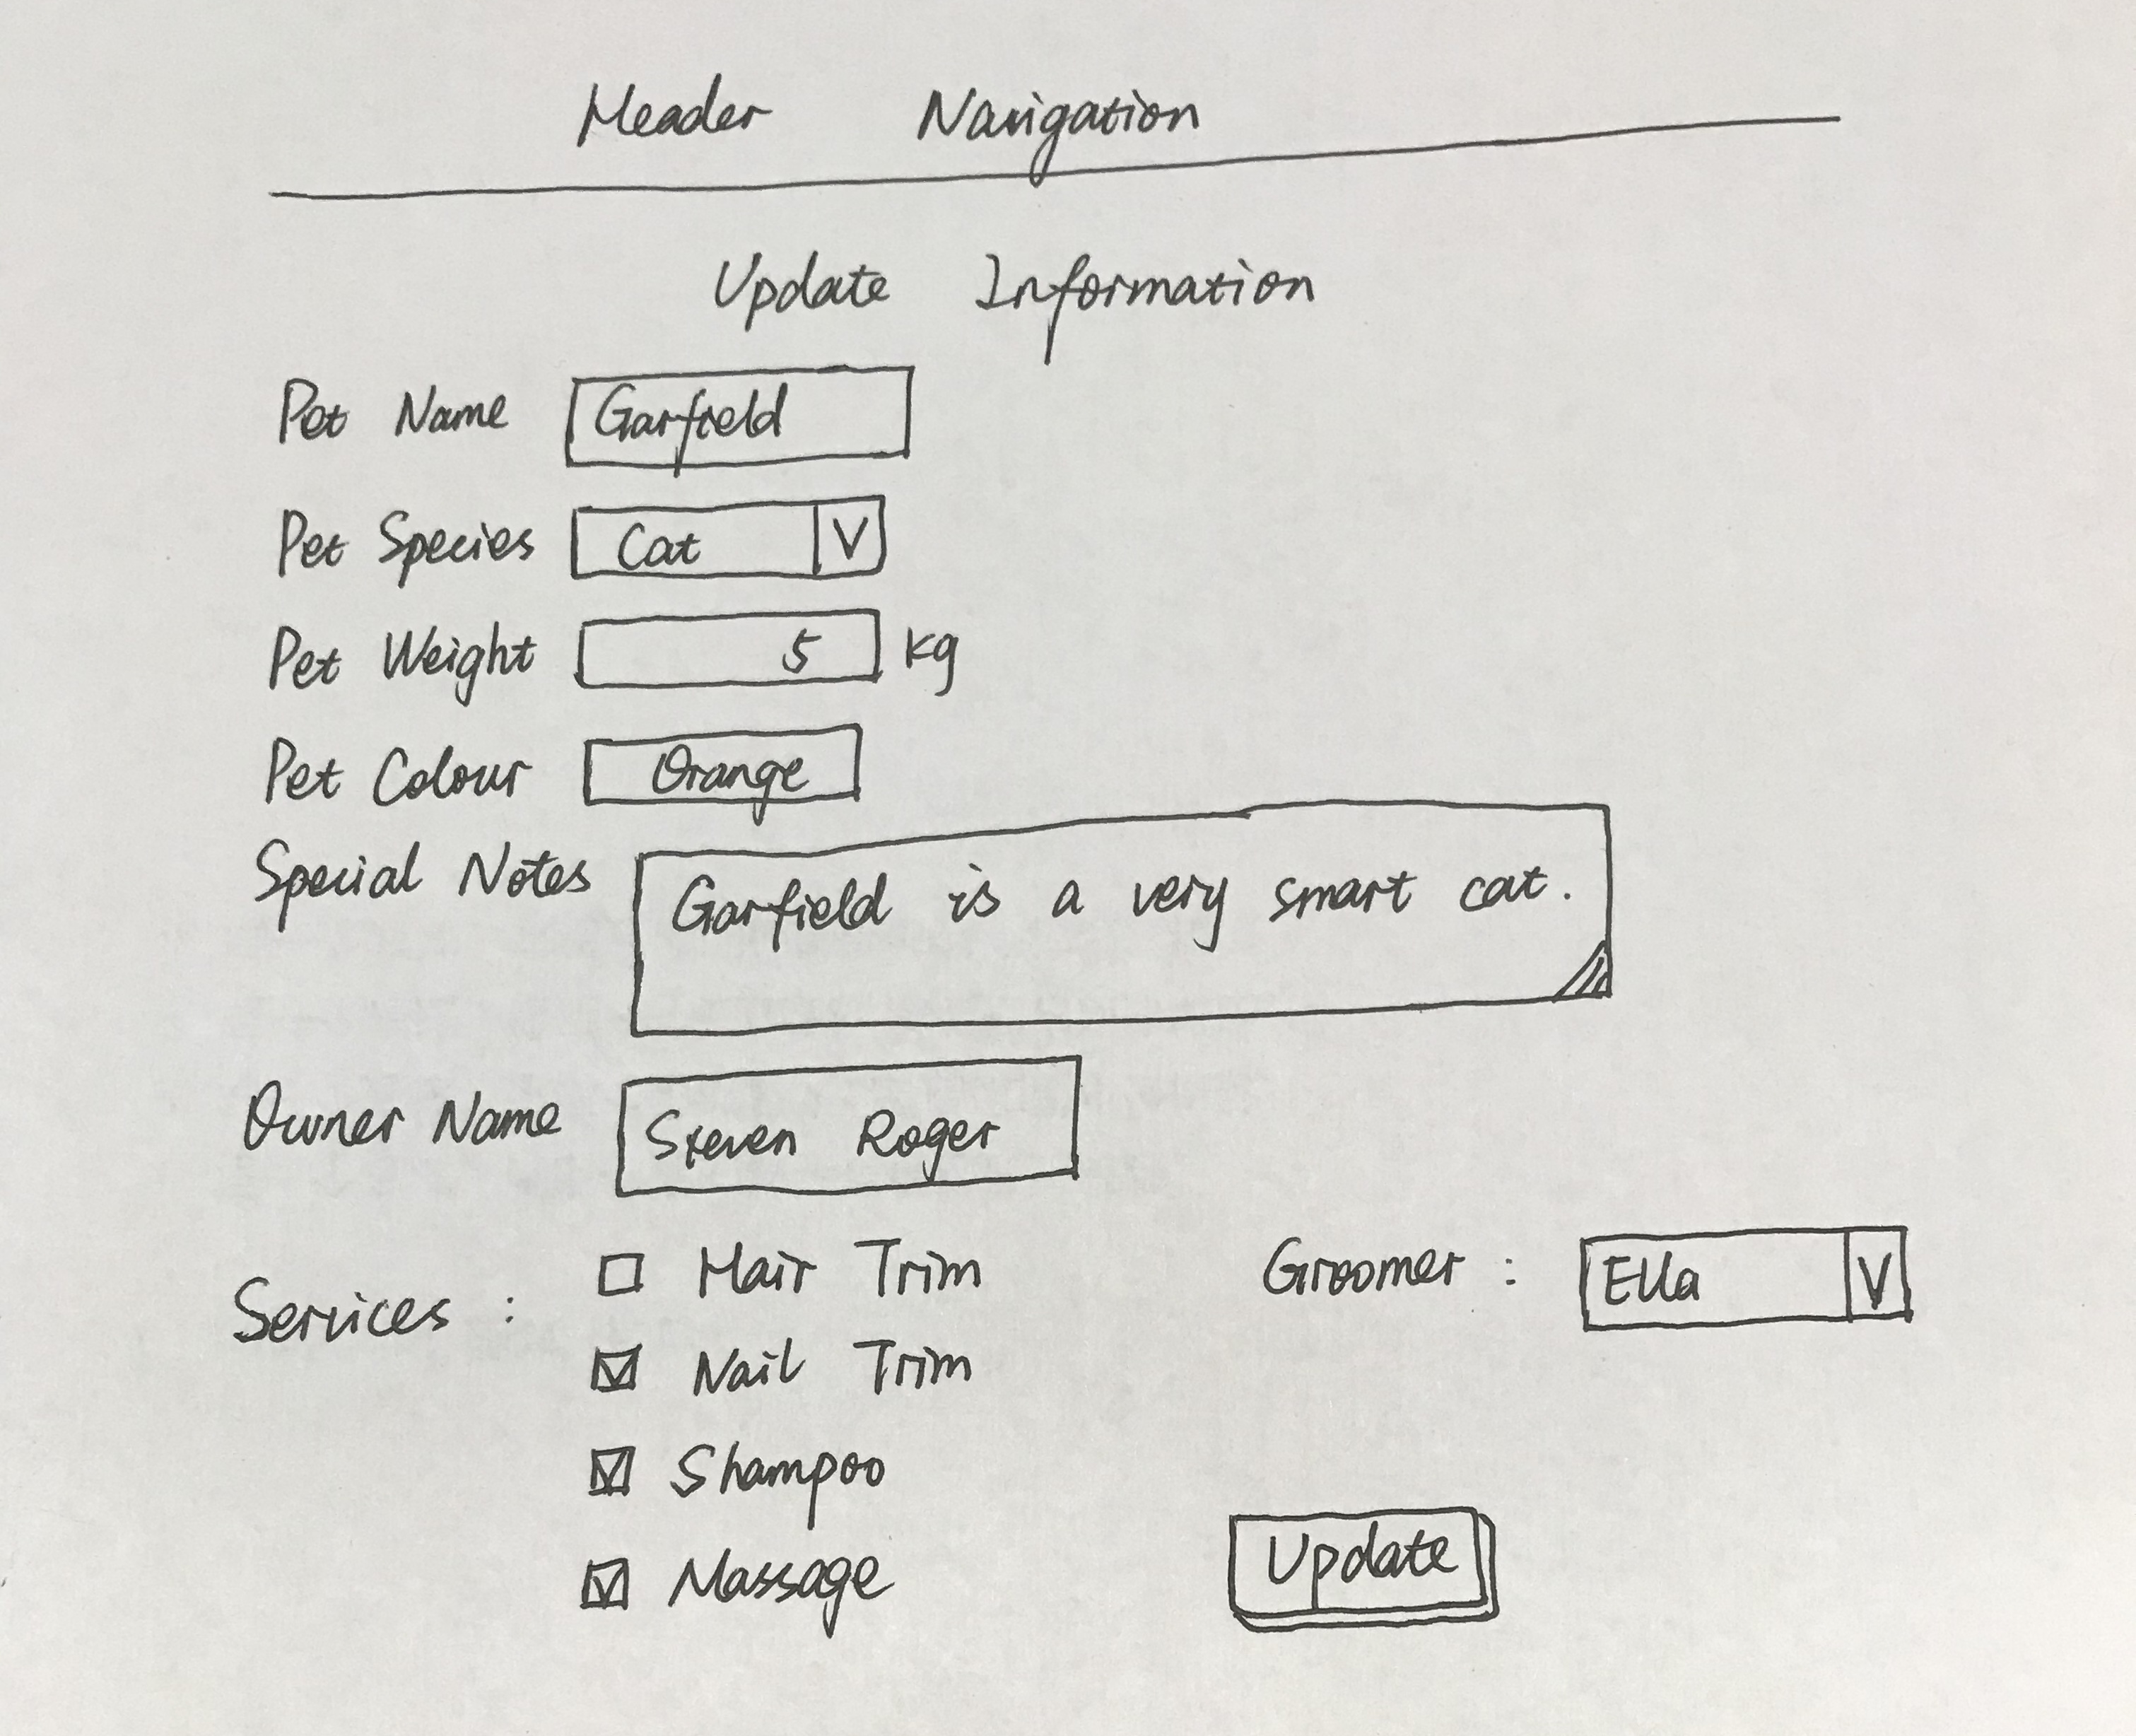 Header Navigation
Update Information
Pet Name Garfield
Pet Species Cat V
Pet Weight 5 kg
Pet Colour Orange
Special Notes Garfield is a very smart cat.
Owner Name Steven Roger
Services : Hair Trim Groomer : Ella V
Nail Trim
Shampoo
Massage Update